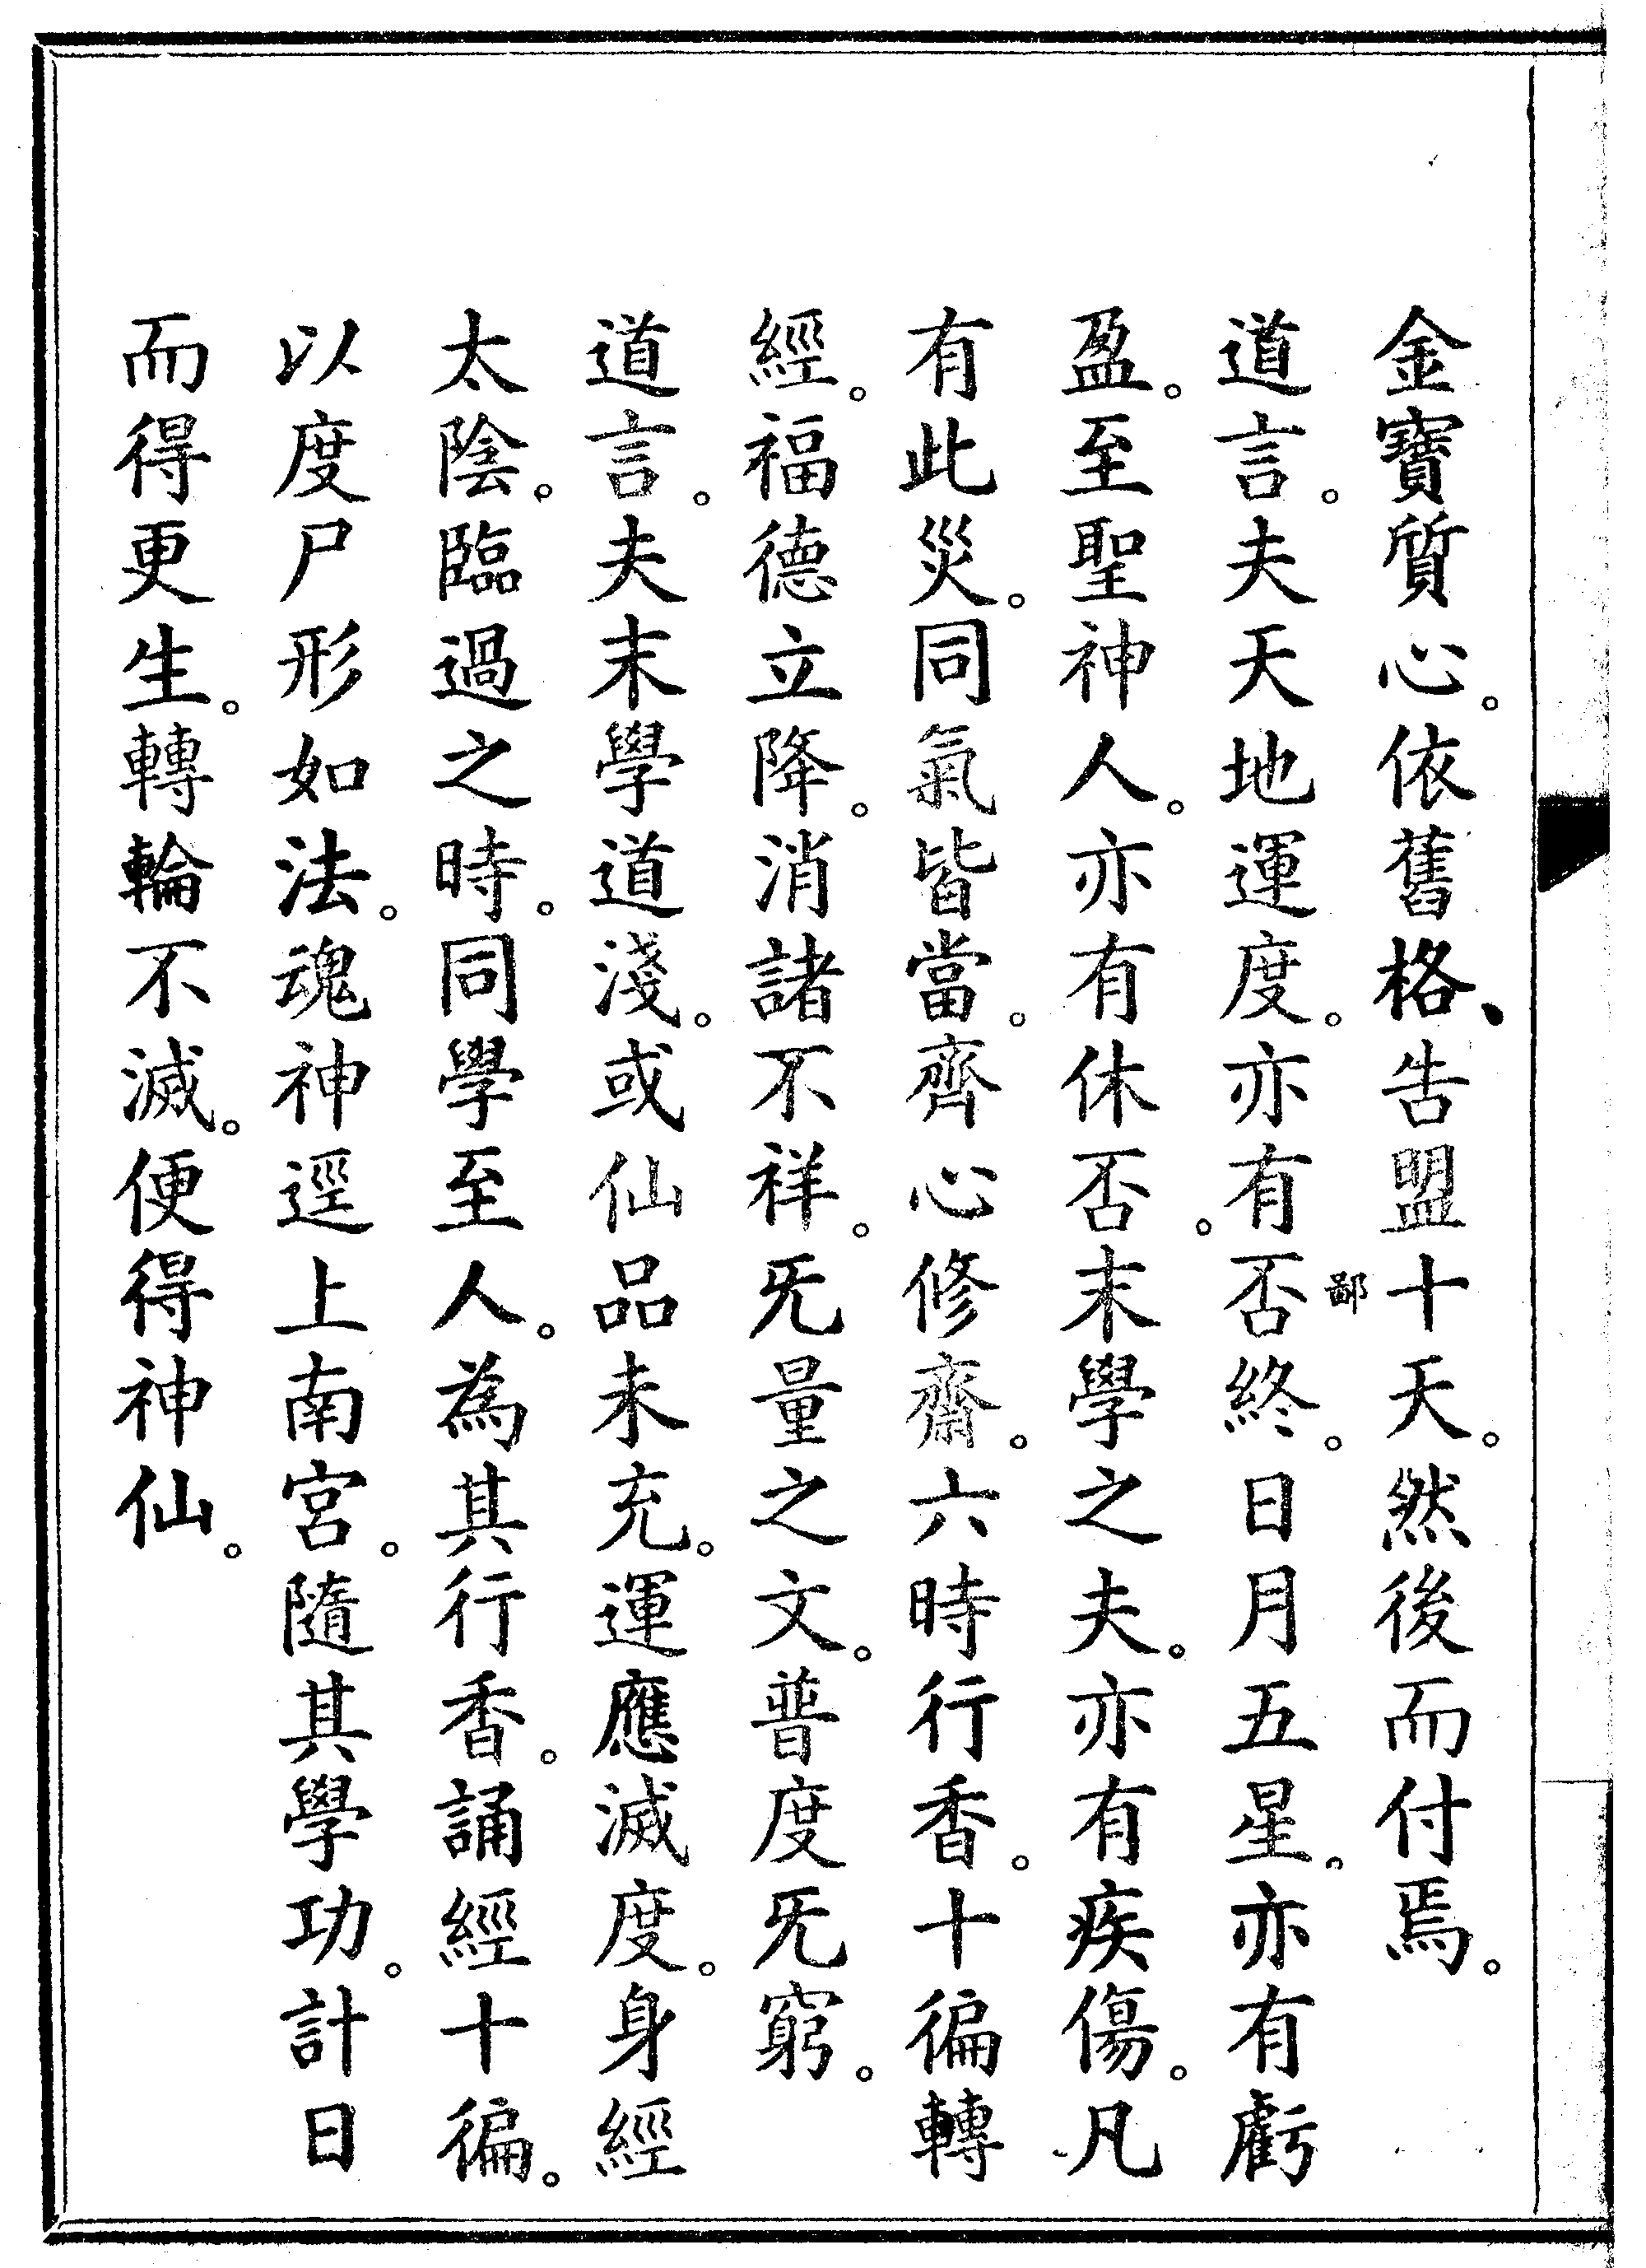 金寶質心。依舊格、告盟十天。然後而付焉。
道言。夫天地運度。亦有否鄙終。日月五星。亦有虧
盈。至聖神人。亦有休否。末學之夫。亦有疾傷。凡
有此災。同氣皆當。齊心修齋。六時行香。十徧轉
經。福德立降。消諸不祥。旡量之文。普度旡窮。
道言。夫末學道淺。或仙品未充。運應滅度。身經
太陰。臨過之時。同學至人。為其行香。誦經十徧。
以度尸形如法。魂神逕上南宮。隨其學功。計日
而得更生。轉輪不滅。便得神仙。